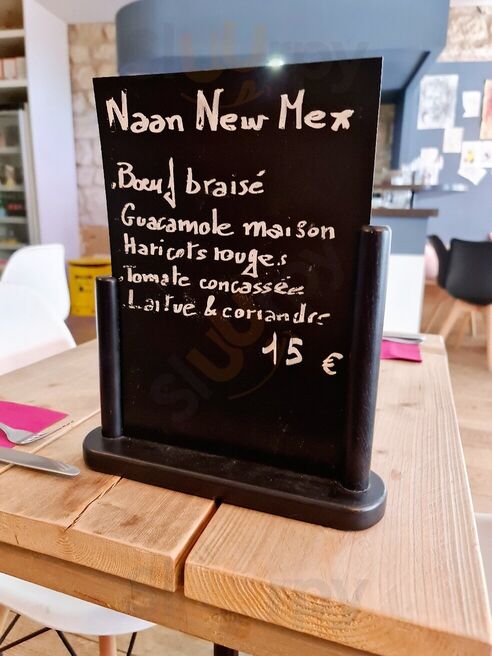 Naan New Mex
.Boeuf braisé
Guacamole maison
Haricots rouges
.Tomate concassée
.Laitue & coriandre
15 €